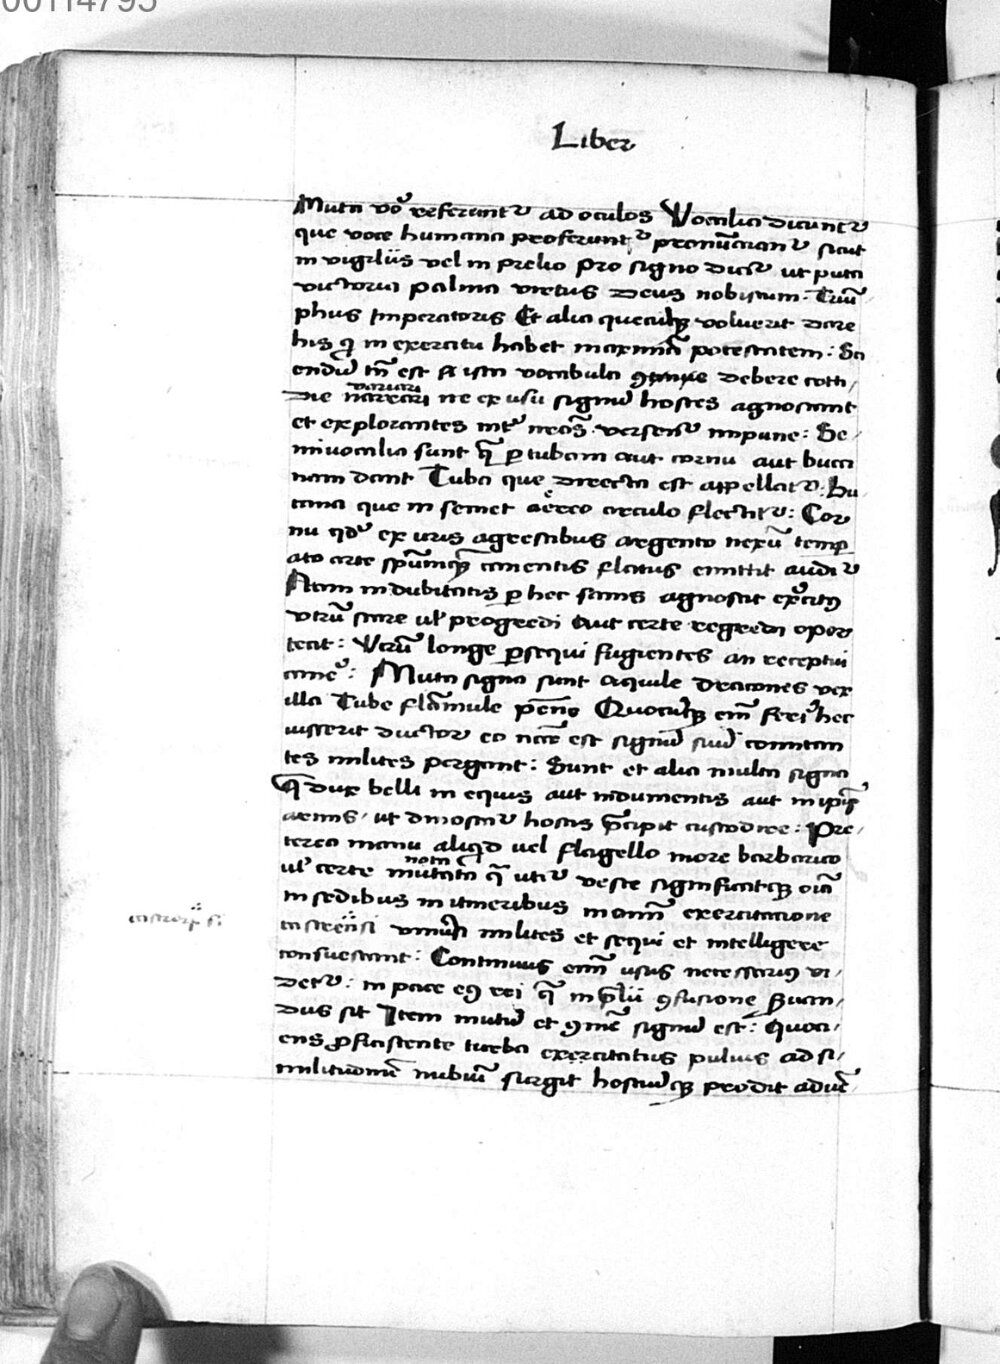 00114795
Liber
Muta vo᷎ referunt᷑ ad oculos Vocalia dicunt᷑
que voce humana proferunt᷑ pronūciant᷑ sicut
in vigiliis vel in prelio pro signo dicit᷑ ut puta
victoria palma virtus deus nobiscum. Triū
phus Imperatoris Et alia quecūqꝫ voluerit dare
his q̇ in exercitu habet maximā potestatem: Sci
endū tn̄ est
vocabula
debere cotti/
variari
die narrari ne ex usu signū hostes agnoscant
et explorantes int᷑ nrōs versent᷑ impune: Se/
mivocalia sunt q̄ ꝑ tubam aut cornu aut bucci
nam dant Tuba que directa est appellat᷑: Bu/
cina que in semet aereo circulo flectit᷑: Cor
nu qd᷑ ex uris agrestibus argento nexū temp
ato arte spūmqꝫ canentis flatus emittit audi᷑
Nam indubitatis ꝑ hec sonis agnoscit exc̄itꝰ
utrū stare ul᷑ progredi aut certe regredi opor
teat: Utrū longe ꝑsequi fugientes an receptui
cane᷑: Muta signa sunt aquile dracones vex
illa Tube flāmule pēne Quocūqꝫ em̄ ferri hec
iusserit ductor eo necē est signū suū comitan
tes milites pergant: Sunt et alia multa signa
q̄ dux belli in equis aut indumentis aut in ipīs
armis/ ut dinoscat᷑ hostis p̄cipit custodire: Pre/
terea manu aliqd vel flagello more barbarico
nota
ul᷑ certe mutata q̄ utit᷑ veste significatqꝫ oīa
in sedibus in itineribus in omī exercitacione
castrensi
castrensi univ̄si milites et sequi et intelligere
consuescant: Continuus em̄ usus necessariꝰ vi/
det᷑: in pace eiꝰ rei q̄ in p̄lii ꝯfusione s̄uan/
dus sit Item mutū et ꝯmē signū est: Quoci/
ens ꝓficiscente turba exercitatus pulvis ad si/
militudinē nubiū surgit hostiūqꝫ prodit advē